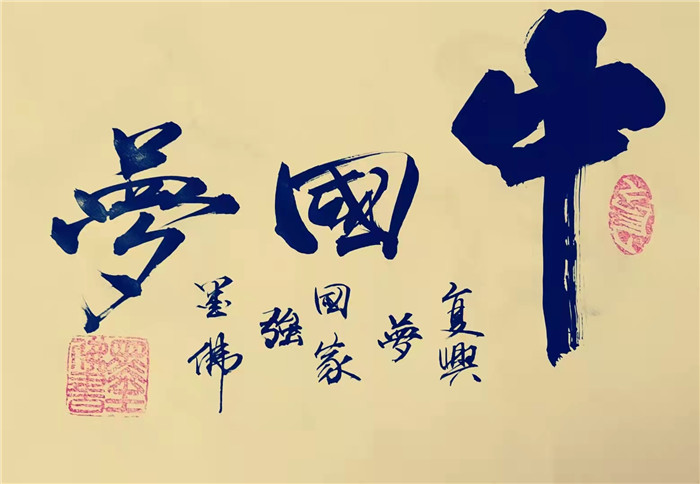 中國夢
复興
夢
国家
強
墨佛